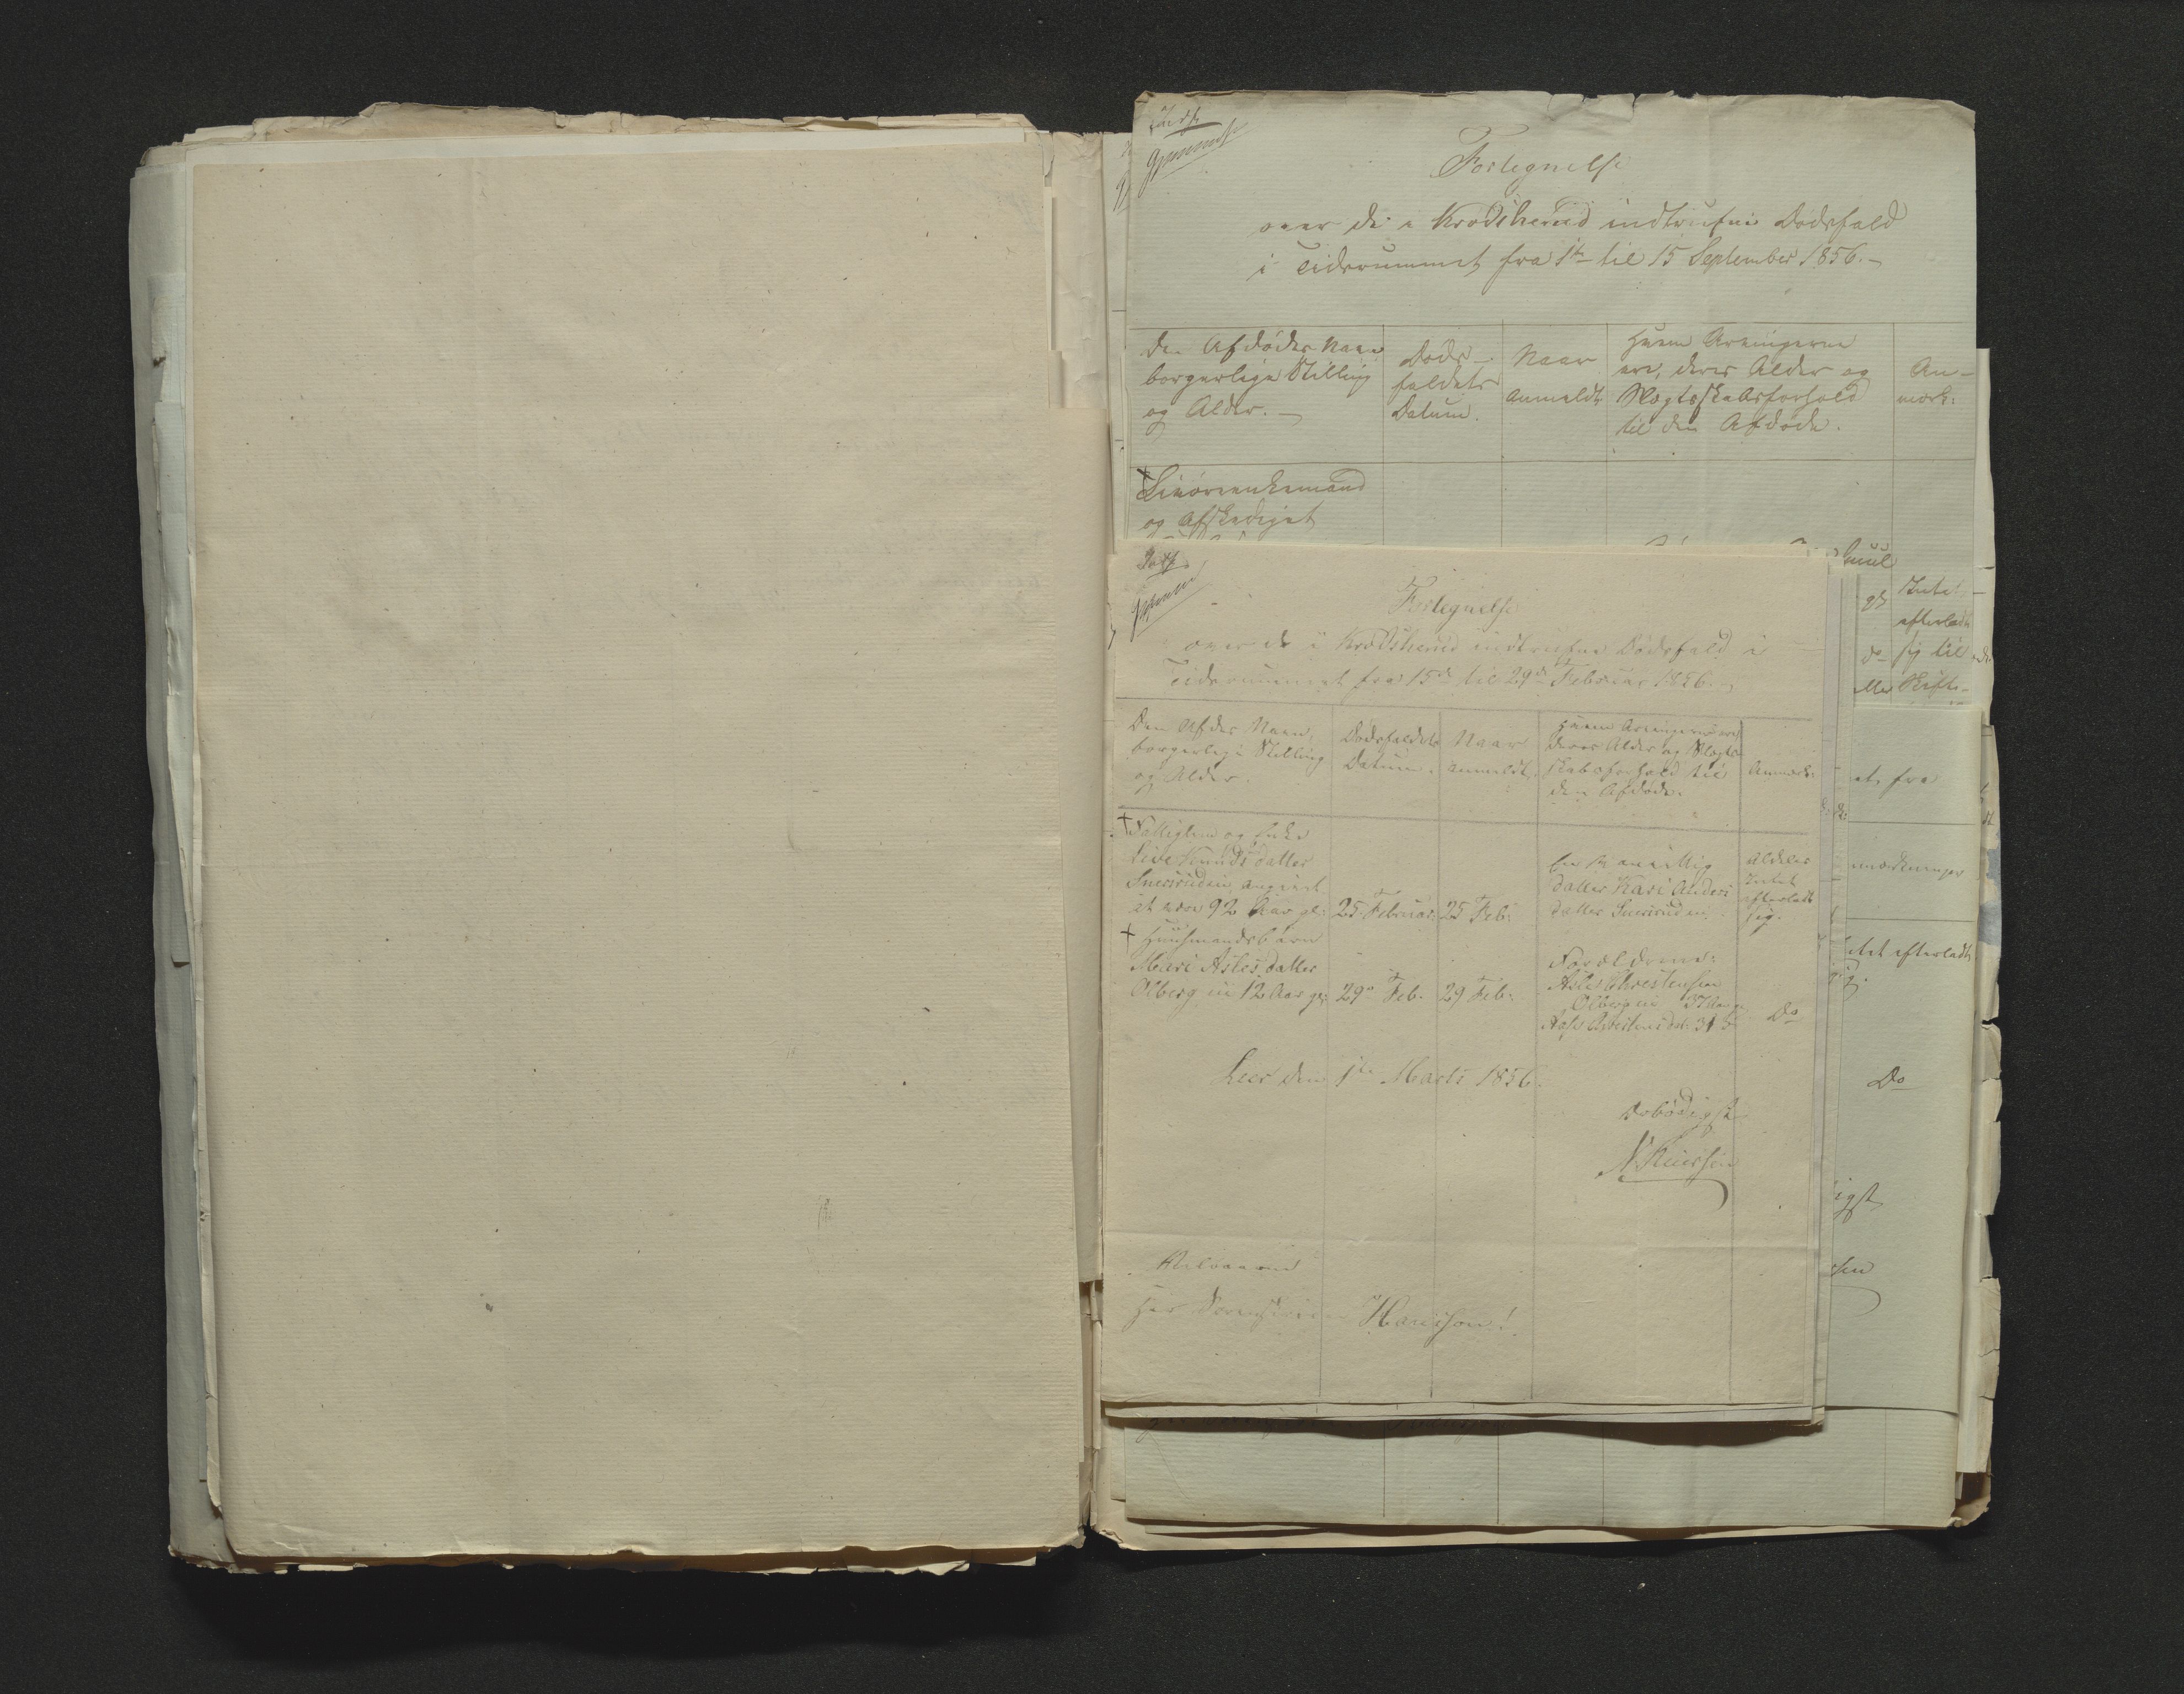 Fortegnelse
over de i Krødsherred indtrufne Dødsfald
i Tidsrummet fra 1te til 15 September 1856.
Den Afdødes Navn
borgerlige Stilling
og Alder.
Døds-
faldets
Datum.
Naar
anmeldt
Hvem Arvingerne
ere, deres Alder og
Slægtskabsforhold
til den Afdøde.
An-
mærk:
og Afskediget
Intet
efterladt
sig til
Skifte
Fortegnelse
over de i Krødsherred indtrufne Dødsfald i
Tidsrummet fra 15de til 29de Februar 1856.
Den Afdøs Navn,
borgerlige Stilling
og Alder.
Dødsfaldets
Datum.
Naar
anmeldt.
Hvem Arvingerne ere,
deres Alder og Slægt-
skabsforhold til
den Afdøde.
Anmærk:
Fattiglem og Enke
Live Knudsdatter
Snersrudeie, angivet
at være 92 Aar gl:
25 Februar:
25 Feb:
En myndig
Datter Kari Anders
datter Snersrudeie
Aldeles
Intet
efterladt
sig.
Huusmandsbarn
Mari Aslesdatter
Olbergeie 12 Aar gl:
29 Feb.
29 Feb:
Forældrene:
Asle Christensen
Olbergeie 37 Aar
Do
Leer den 1te Marts 1856.
Ærbødigst
Velbaarne
Herr Sorenskriver Harrison!
et fra
mærkninger
Intet efterladt
sig.
Do
igst